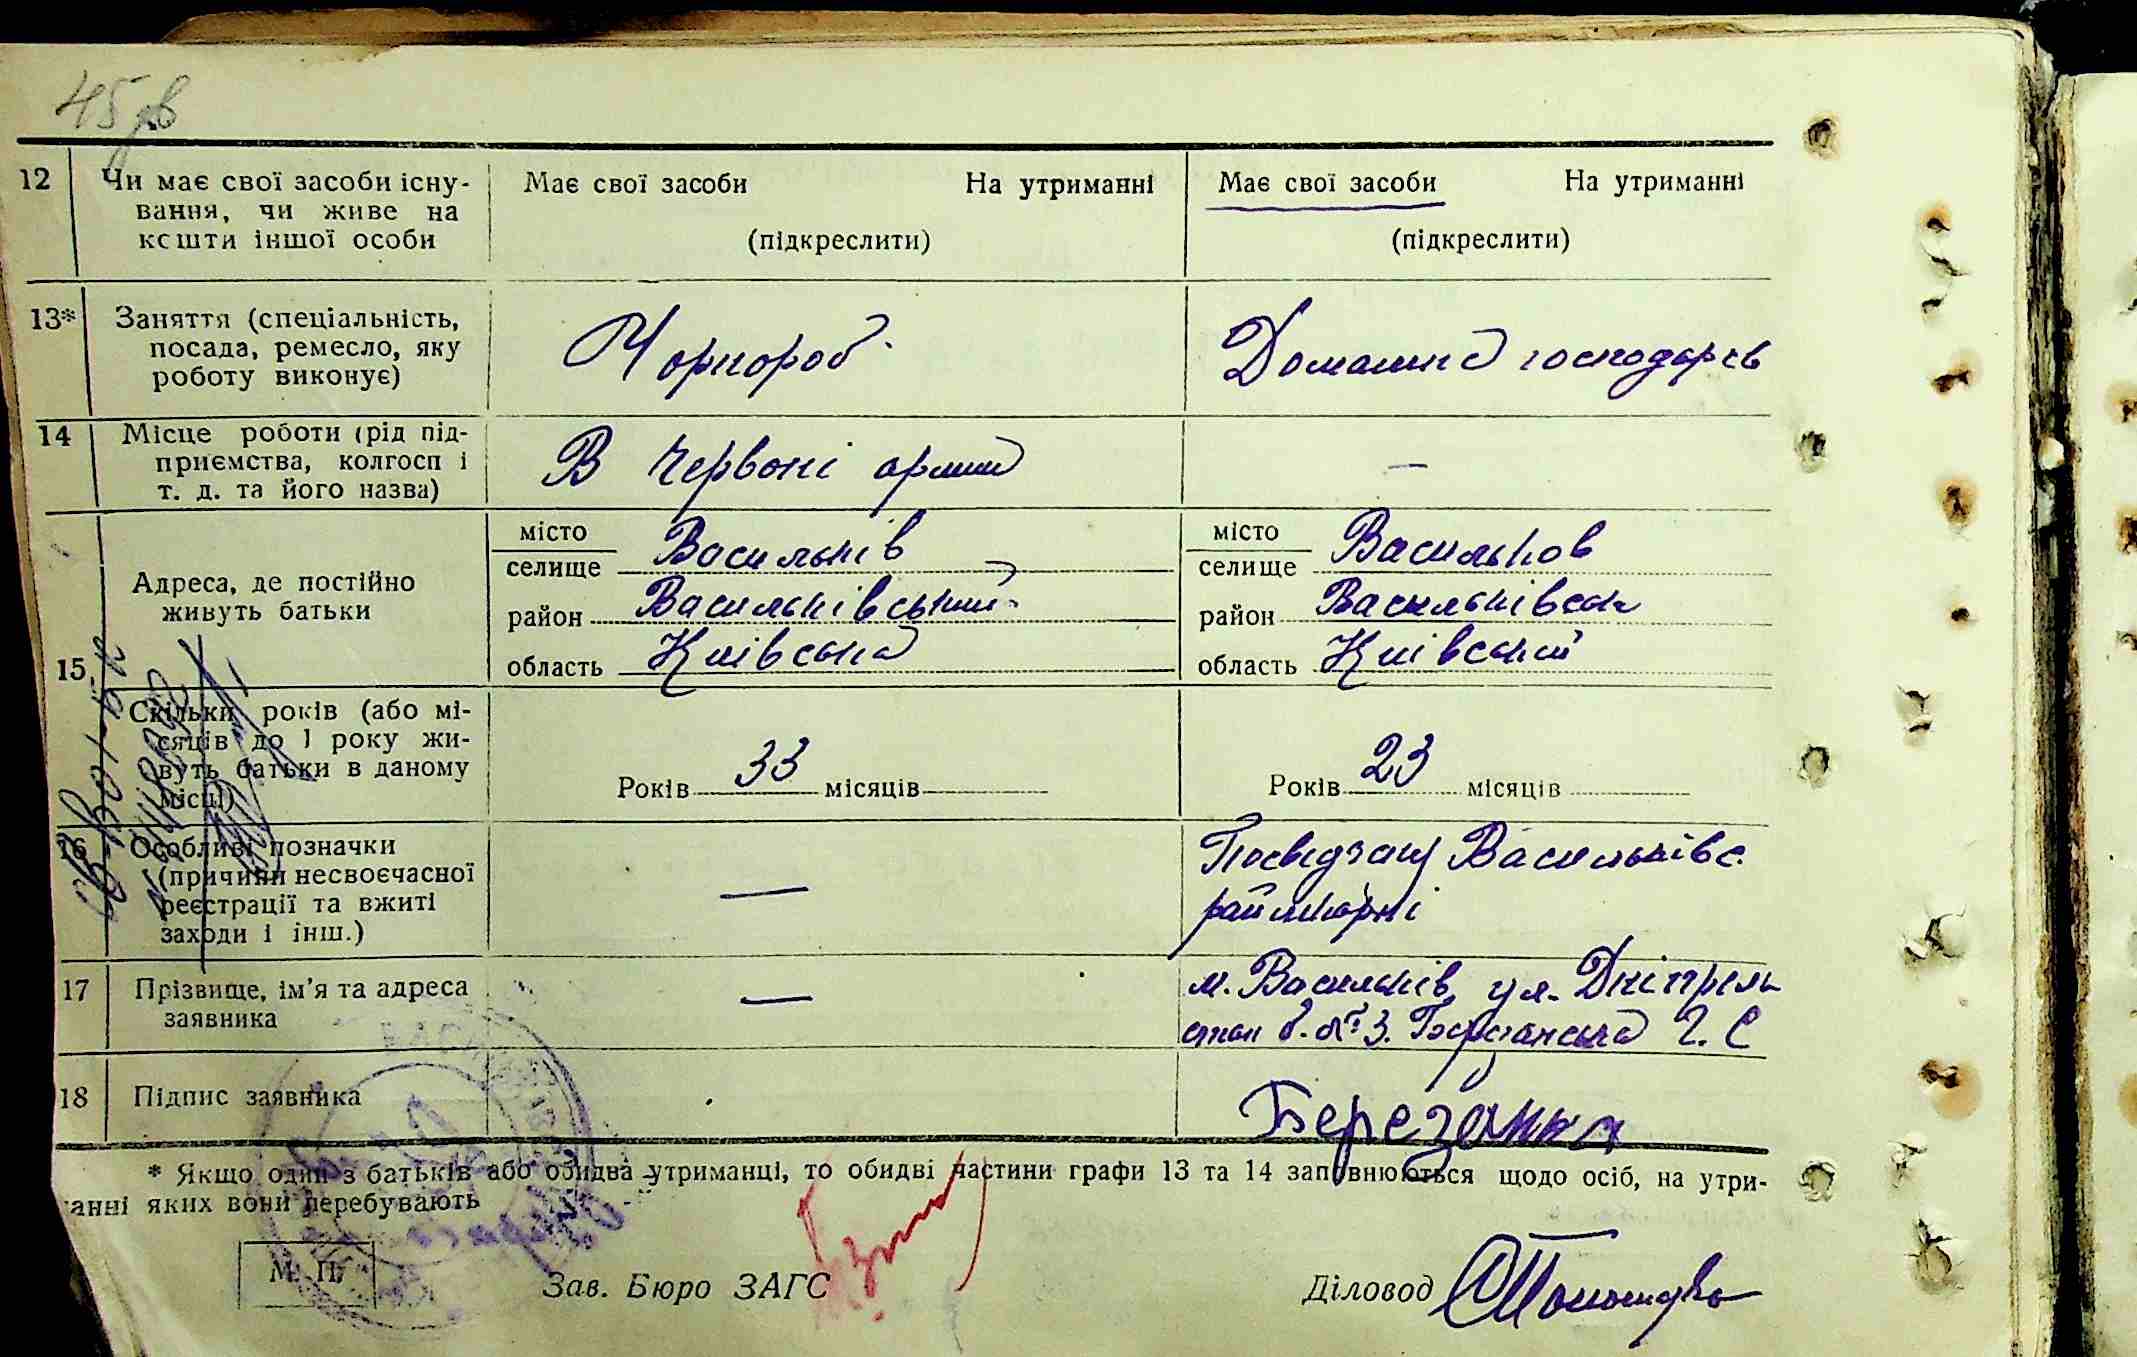 45 зв
12 Чи має свої засоби існу-
вання, чи живе на
кошти іншої особи
Має свої засоби На утриманні
(підкреслити)
Має свої засоби На утриманні
(підкреслити)
13* Заняття (спеціальність,
посада, ремесло, яку
роботу виконує)
Чорнороб
Домашнє господарсв
14 Місце роботи (рід під-
приємства, колгосп і
т. д. та його назва)
В Червоні армии
—
15 Адреса, де постійно
живуть батьки
місто
селище Васильків
район Васильківський
область Київська
місто
селище Васильков
район Васильківськ
область Київський
Скільки років (або мі-
сяців до 1 року жи-
вуть батьки в даному
місці)
Років 33 місяців
Років 23 місяців
16 Особливі позначки
(причини несвоєчасної
реєстрації та вжиті
заходи і інш.)
—
Посвідзач Васильківс.
райлікарні
17 Прізвище, ім'я та адреса
заявника
—
м. Васильків ул. Дніпрель
стан б. № 3. Березанська Г. С
18 Підпис заявника
Березанка
* Якщо один з батьків або обидва утриманці, то обидві частини графи 13 та 14 заповнюються щодо осіб, на утри-
анні яких вони перебувають
М. П.
Зав. Бюро ЗАГС
Діловод